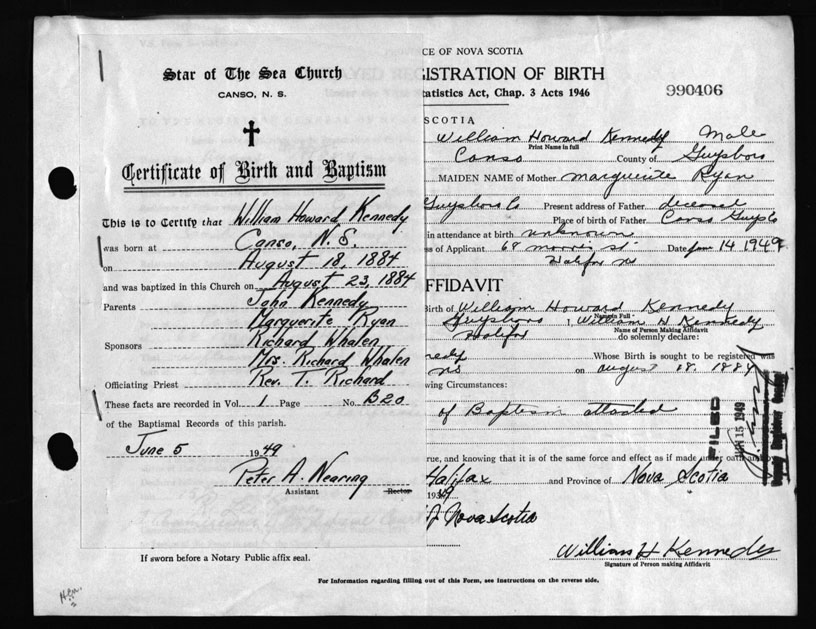 Star of The Sea Church
CANSO, N. S.
Certificate of Birth and Baptism
This is to Certify that William Howard Kennedy
was born at Canso, N.S.
on August 18, 1884
and was baptized in this Church on August 23, 1884
Parents John Kennedy
Marguerite Ryan
Sponsors Richard Whalen
Mrs. Richard Whalen
Officiating Priest Rev. T. Richard
These facts are recorded in Vol. 1 Page No. B20
of the Baptismal Records of this parish.
June 5 1949
Peter A. Nearing
Assistant Rector
If sworn before a Notary Public affix seal.
CE OF NOVA SCOTIA
ISTRATION OF BIRTH
tatistics Act, Chap. 3 Acts 1946
990406
SCOTIA
William Howard Kennedy Male
Print Name in full
Canso County of Guysboro
MAIDEN NAME of Mother Marguerite Ryan
Guysboro Co Present address of Father deceased
Place of birth of Father Canso Guys Co
in attendance at birth unknown
ss of Applicant 68 Morris St Date Jan 14 1949
Halifax NS
FFIDAVIT
Birth of William Howard Kennedy
Name in Full
Guysboro I, William H Kennedy
Name of Person Making Affidavit
Halifax do solemnly declare:
nedy Whose Birth is sought to be registered was
NS on August 18. 1884
wing Circumstances:
of Baptism attached
FILED
15 1949
rue, and knowing that it is of the same force and effect as if made under oath
Halifax and Province of Nova Scotia
193
Nova Scotia
William H Kennedy
Signature of Person making Affidavit
For Information regarding filling out of this Form, see Instructions on the reverse side.